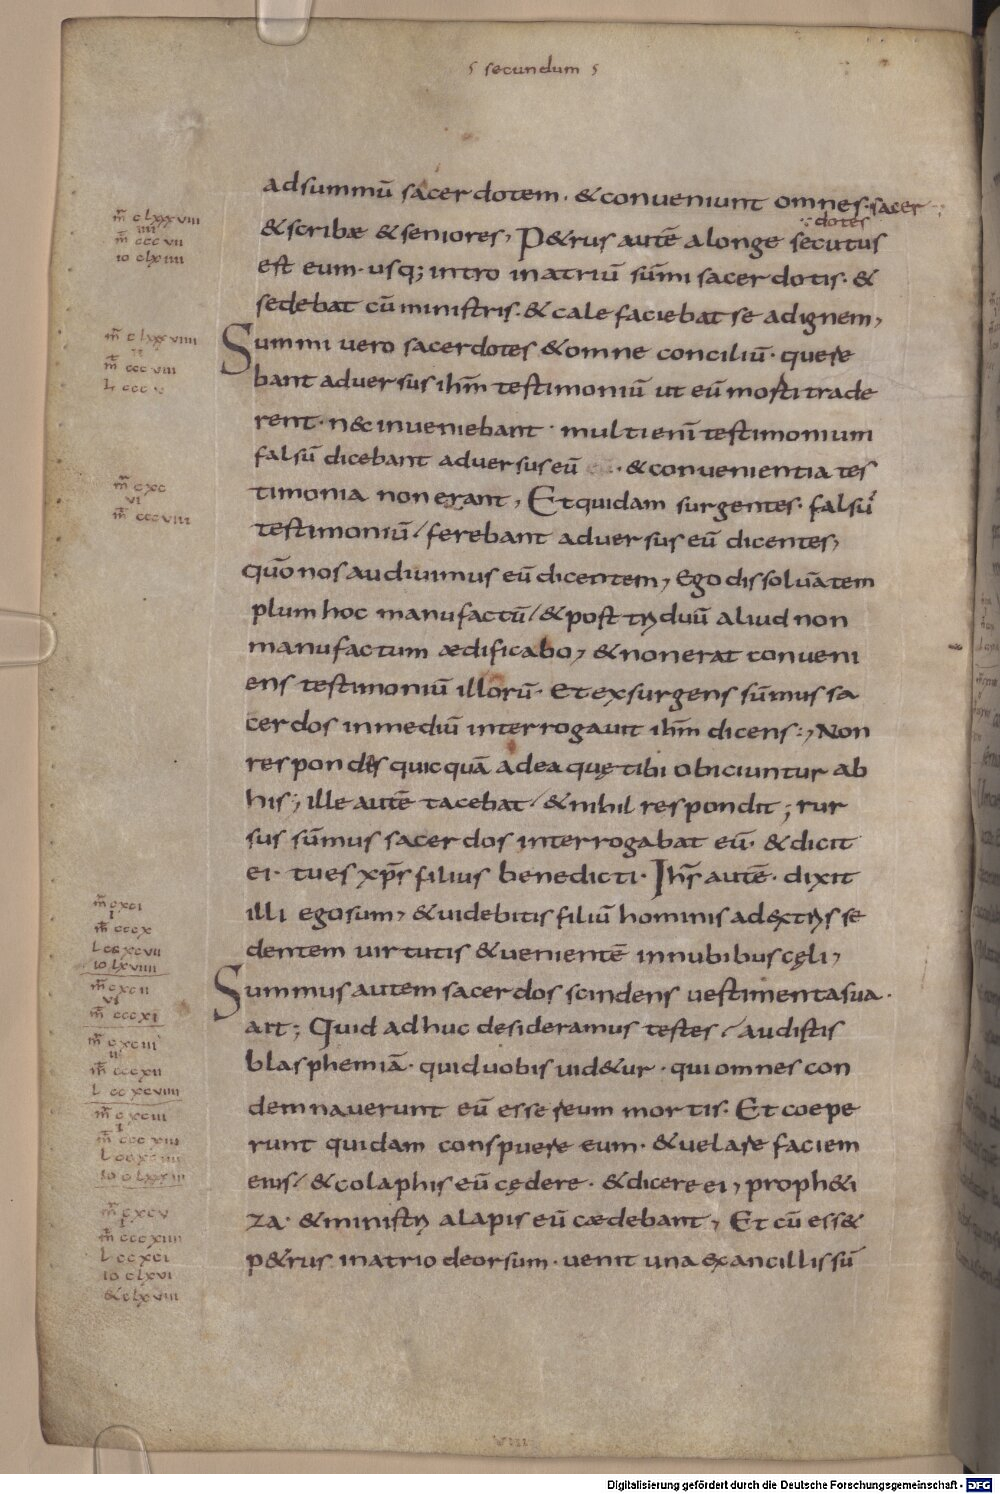 secundum
ad summū sacerdotem · & conveniunt omnes · sacer
dotes
& scribæ & seniores, P&rus autē a longe secutus
est eum · usq; intro in atriū sūmi sacerdotis · &
sedebat cū ministris · & calefaciebat se ad ignem,
Summi vero sacerdotes & omne conciliū · quere
bant adversus ihm̄ testimoniū ut eū morti trade
rent · nec inveniebant · multi enī testimonium
falsū dicebant adversus eū · & convenientia tes
timonia non erant, Et quidam surgentes · falsū
testimoniū / ferebant adversus eū dicentes,
quō nos audivimus eū dicentem, Ego dissolvā tem
plum hoc manufactū / & post triduū aliud non
manufactum ædificabo, & non erat conveni
ens testimoniū illorū · et exsurgens sūmus sa
cerdos in mediū interrogavit ihm̄ dicens :, Non
respondes quicquā ad ea quę tibi obiciuntur ab
his ; ille autē tacebat / & nihil respondit ; rur
sus sūmus sacerdos interrogabat eū · & dicit
ei · tu es xp̄s filius benedicti · Ihs̄ autē · dixit
illi ego sum, & videbitis filiū hominis a dextris se
dentem virtutis & venientē in nubibus cęli,
Summus autem sacerdos scindens vestimenta sua ·
ait ; Quid adhuc desideramus testes / audistis
blasphemiā · quid vobis vid&ur · qui omnes con
demnaverunt eū esse reum mortis · Et coepe
runt quidam conspuere eum · & velare faciem
eius / & colaphis eū cędere · & dicere ei, proph&i
za · & ministri alapis eū cædebant, Et cū ess&
p&rus in atrio deorsum · venit una ex ancillis sū
m̄ clxxxviii
iiii
m̄ cccvii
io clxiiii
m̄ clxxxviiii
m̄ cccviii
L ccc
m̄ cxc
vi
m̄ cccviiii
m̄ cxci
i
m̄ cccx
L ccxcvii
io lxviiii
m̄ cxcii
vi
m̄ cccxi
m̄ cxciii
ii
m̄ cccxii
L ccxcviiii
m̄ cxciiii
i
m̄ cccxiii
io clxxiii
m̄ cxcv
i
m̄ cccxiiii
L ccxci
io clxvi
& clxviii
Digitalisierung gefördert durch die Deutsche Forschungsgemeinschaft - DFG